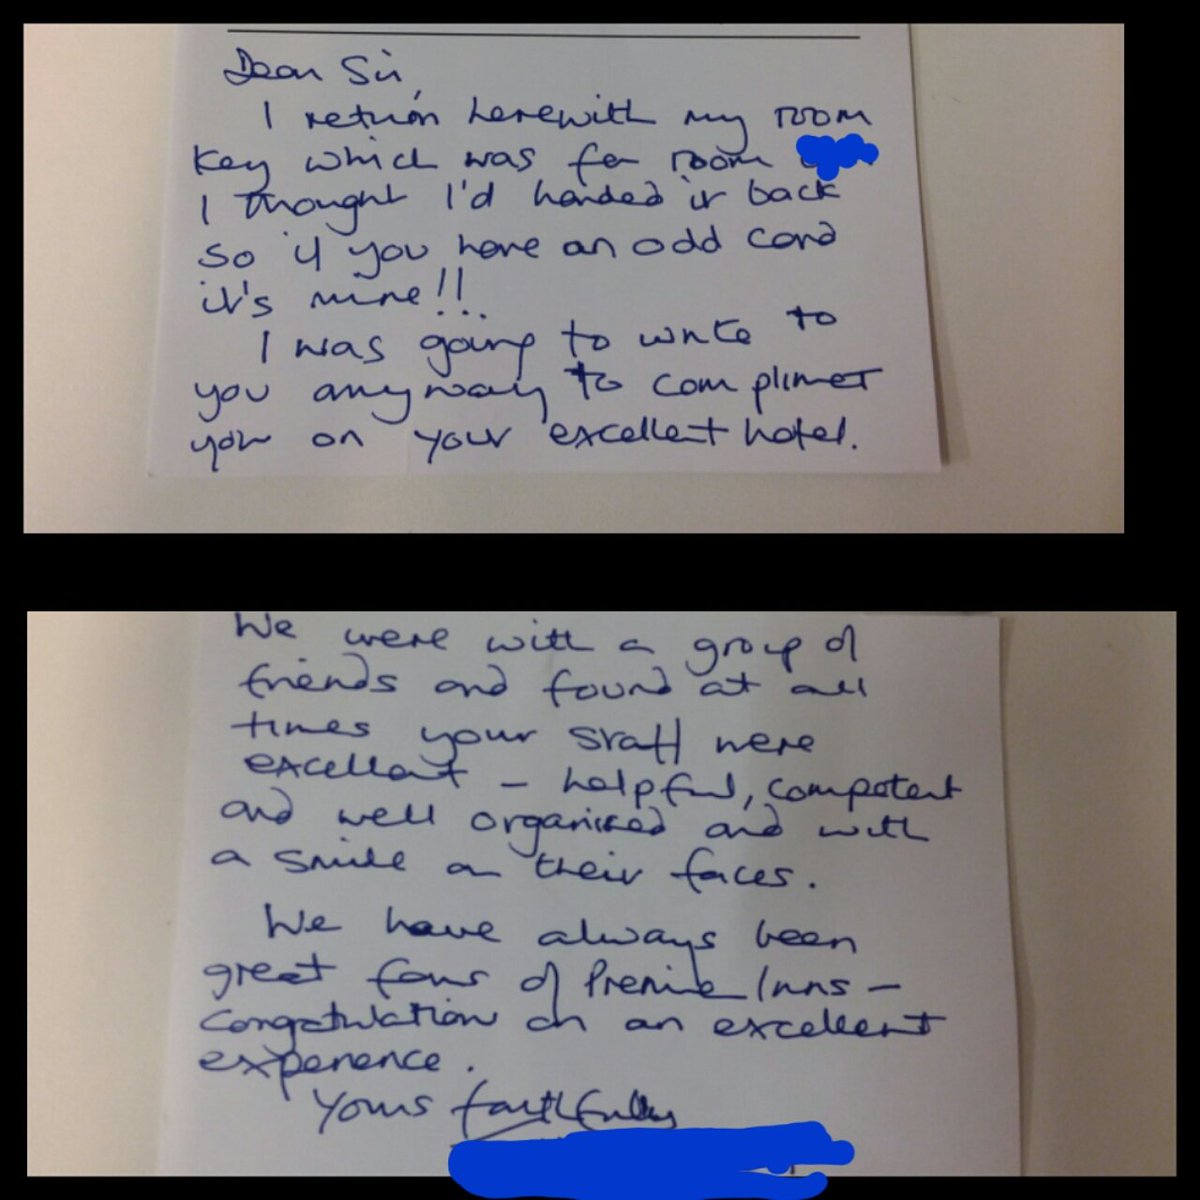 Dear Sir,
I return herewith my room
key which was for room
I thought I'd handed it back
so if you have an odd card
it's mine!!
I was going to write to
you anyway to complimet
you on your excellent hotel.
We were with a group of
friends and found at all
times your staff were
excellent – helpful, competent
and well organised and with
a smile on their faces.
We have always been
great fans of Premier Inns –
Congratulation on an excellent
experience.
Yours faithfully